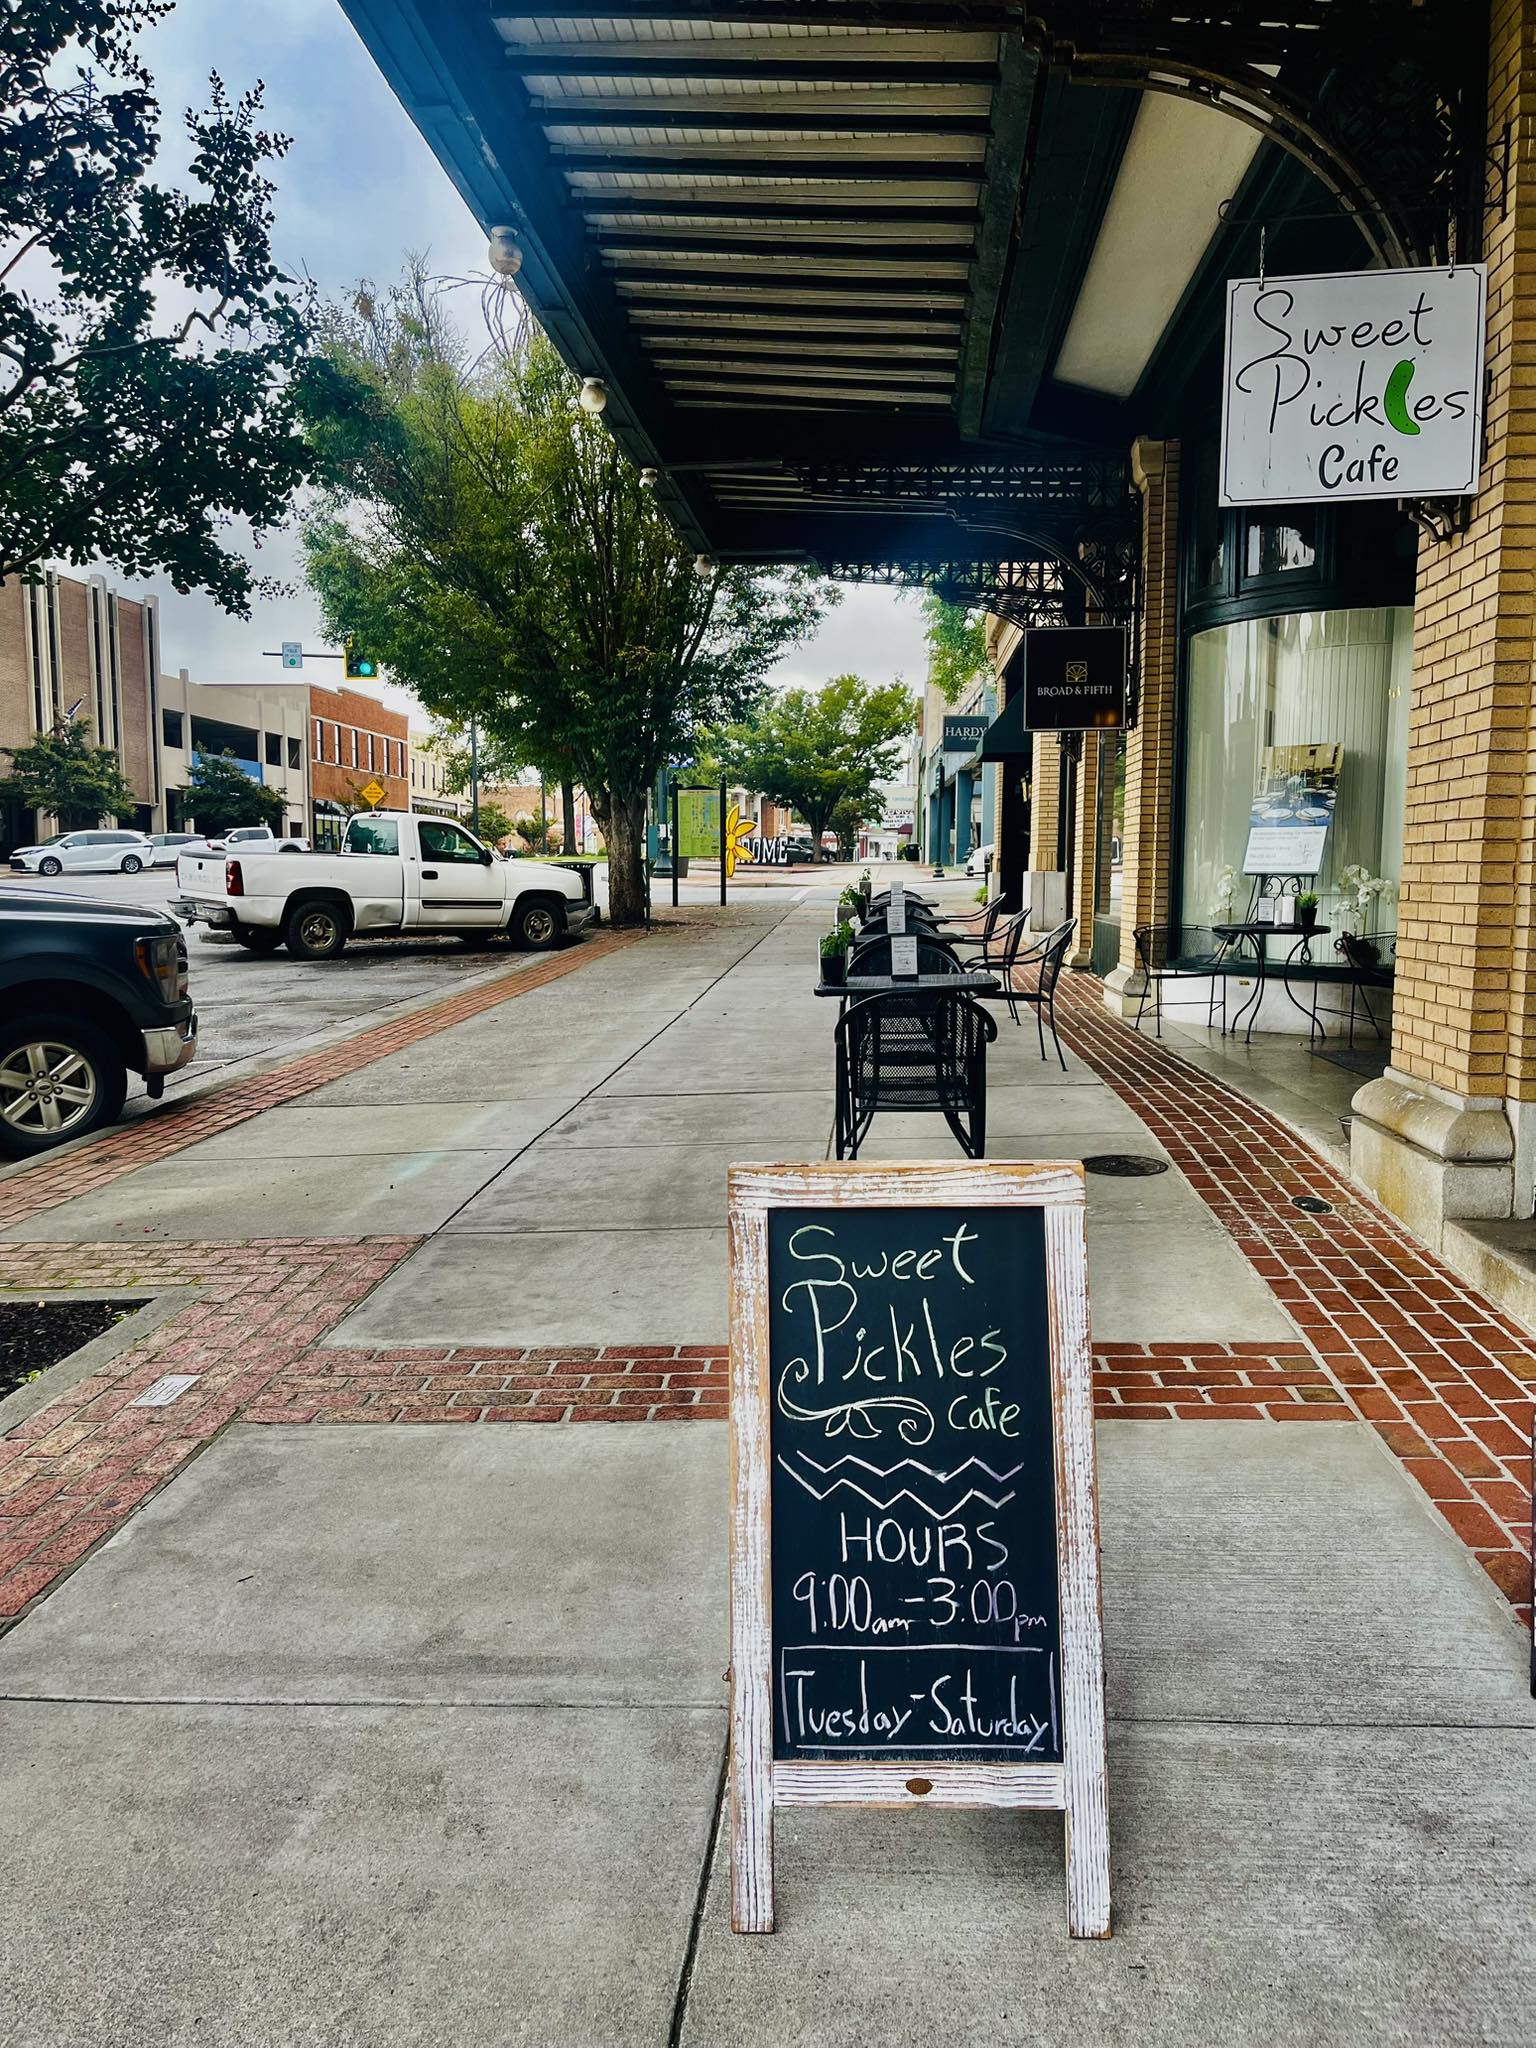 Sweet
Pickles
Cafe
BROAD & FIFTH
HARDY
CHEVROLET
OME
Sweet
Pickles
Cafe
HOURS
9:00am-3:00pm
Tuesday-Saturday